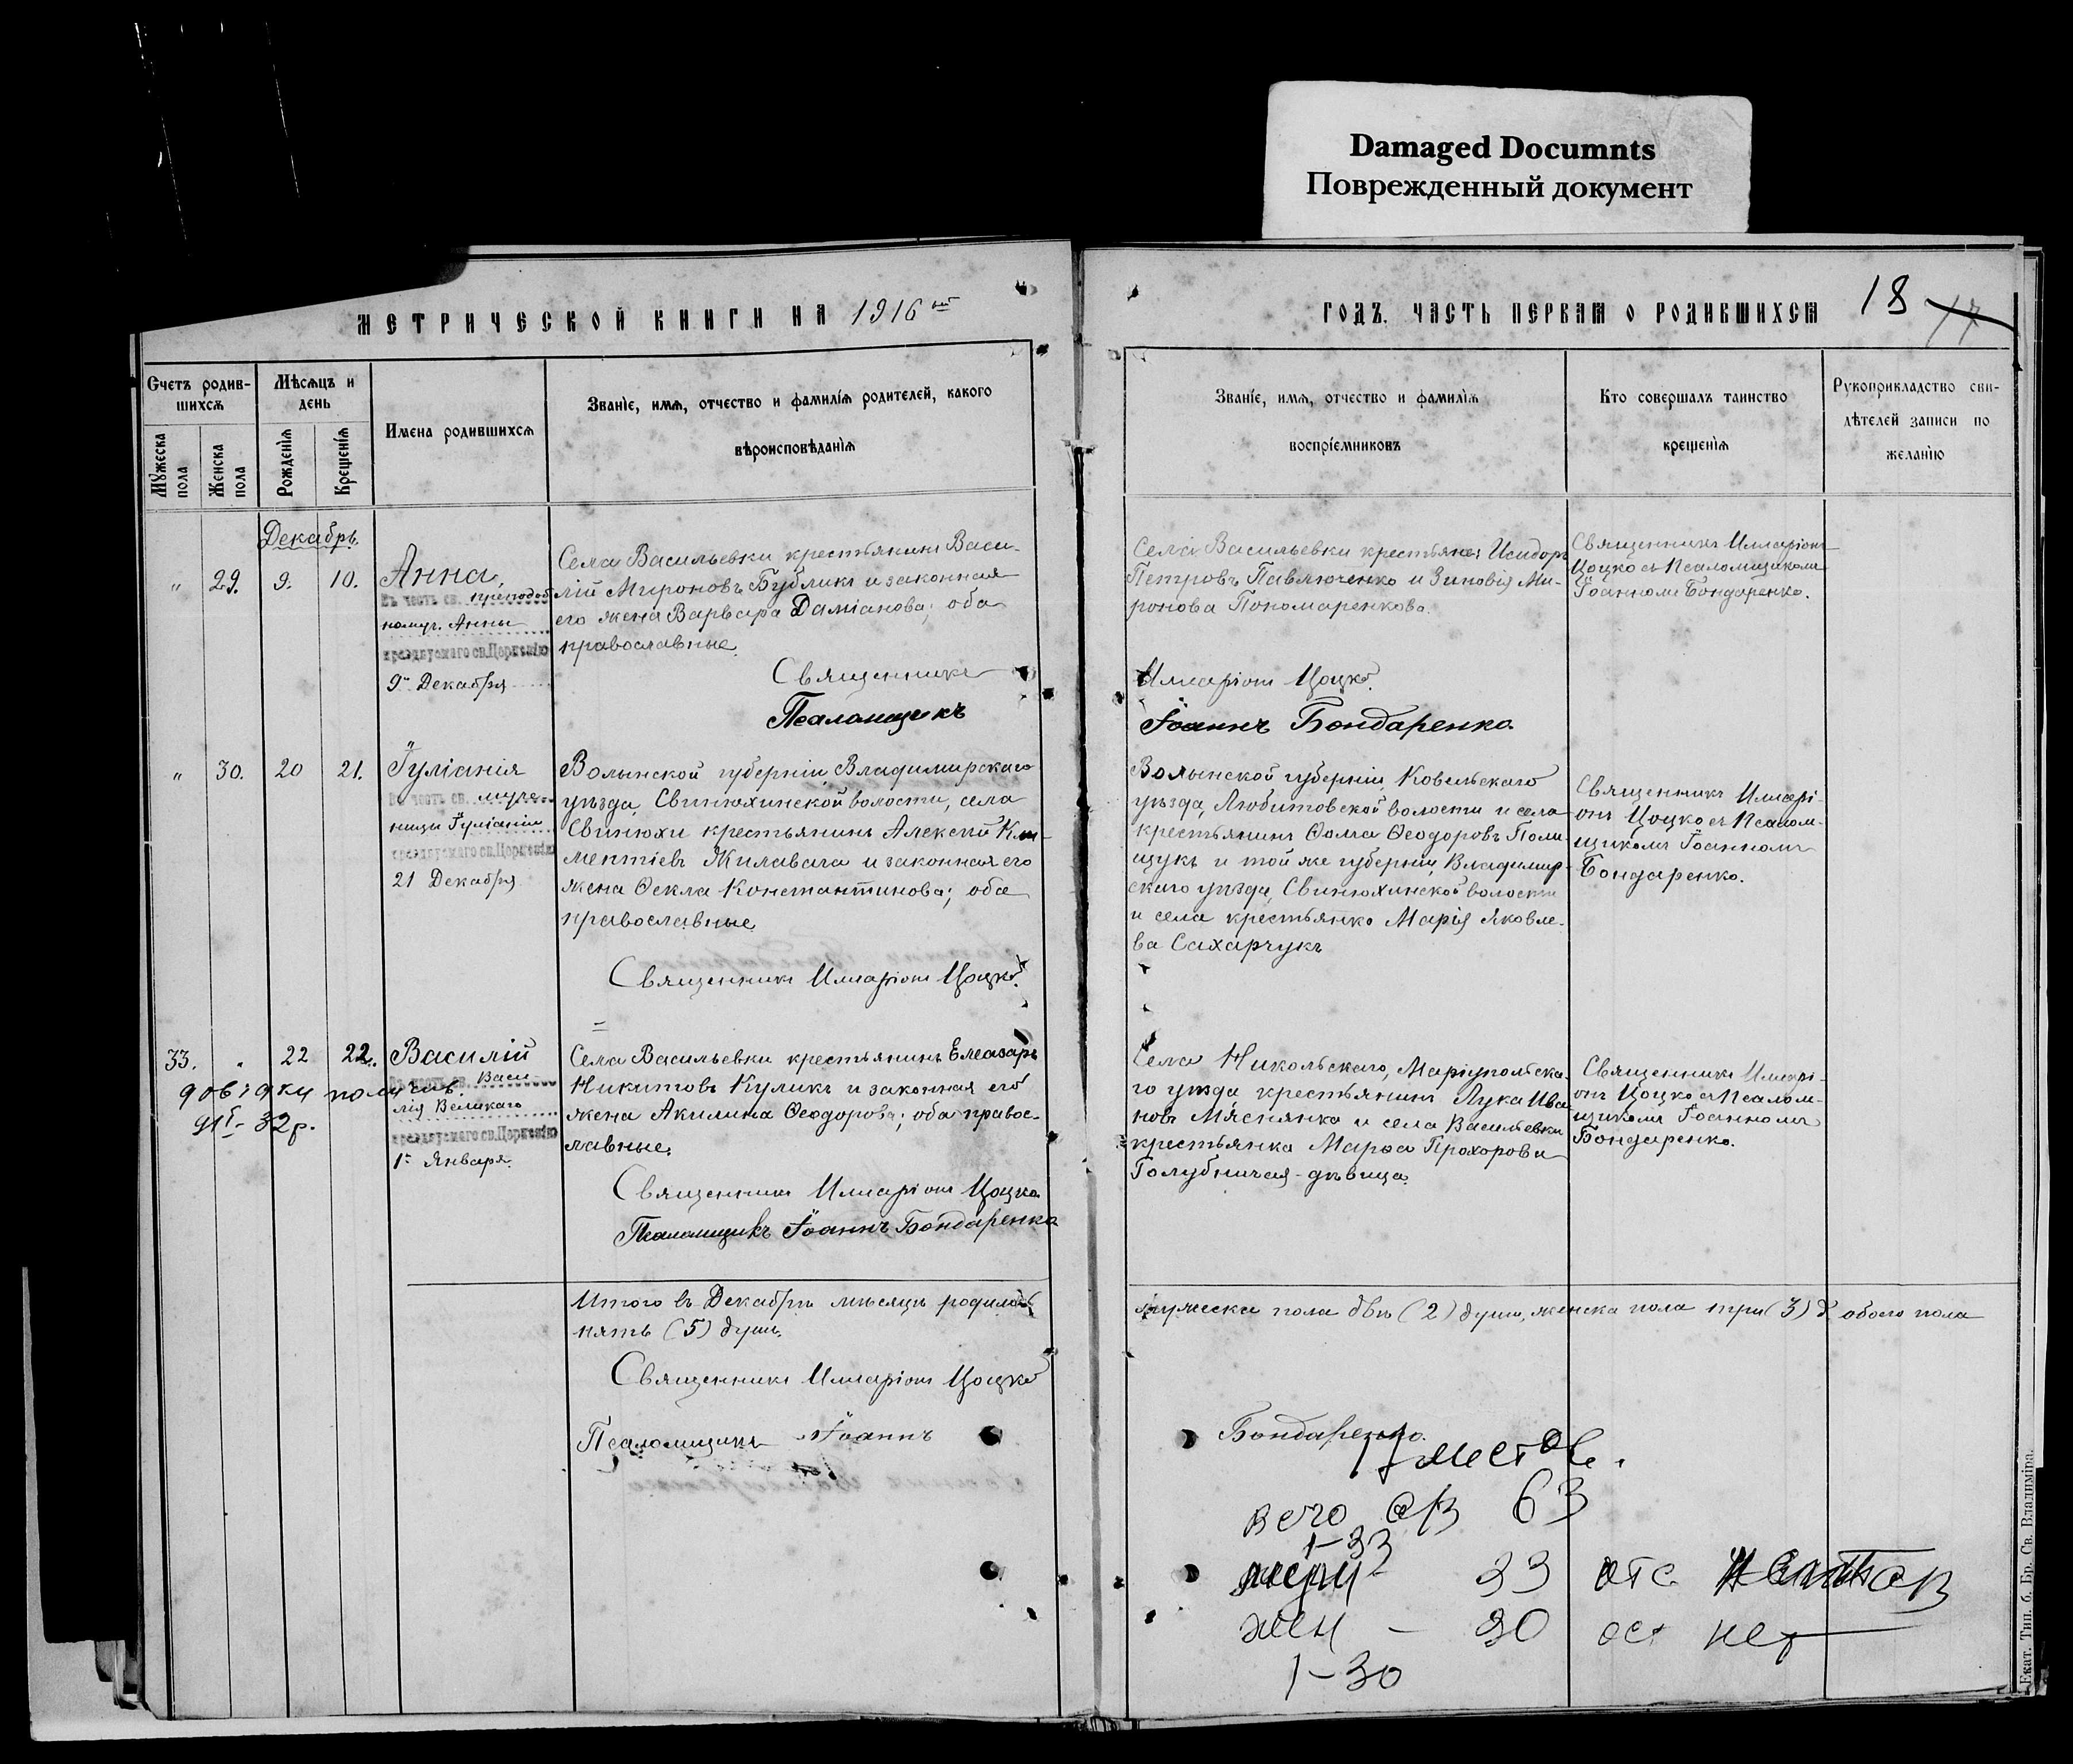 Damaged Documnts
Поврежденный документ
МЕТРИЧЕСКОЙ КНИГИ НА 1916 ый
ГОДЪ. ЧАСТЬ ПЕРВАЯ О РОДИВШИХСЯ
18 17
Счетъ родив-
шихся
Мужеска
пола
Женска
пола
Мѣсяцъ и
день
Рожденія
Крещенія
Имена родившихся
Званіе, имя, отчество и фамилія родителей, какого
вѣроисповѣданія
Званіе, имя, отчество и фамилія
воспріемниковъ
Кто совершалъ таинство
крещенія
Рукоприкладство сви-
дѣтелей записи по
желанію
Декабрь.
" 29. 9. 10.
Анна,
Въ честь св. преподоб
номуч. Анны
празднуемаго св. Церковію
9го Декабря
Села Васильевки крестьянинъ Васи-
лій Мироновъ Бубликъ и законная
его жена Варвара Даміанова; оба
православные.
Священникъ
Псаломщикъ
Села Васильевки крестьяне: Исидоръ
Петровъ Павлюченко и Зиновія Ми-
ронова Пономаренкова.
Иларіонъ Цоцко.
Іоаннъ Бондаренко.
Священникъ Иларіонъ
Цоцко съ Псаломщикомъ
Іоанномъ Бондаренко.
" 30. 20 21.
Іуліанія
Въ честь св. муче-
ницы Іуліаніи
празднуемаго св. Церковію
21 Декабря
Волынской губерніи, Владимирскаго
уѣзда, Свинюхинской волости, села
Свинюхи крестьянинъ Алексій Кли-
ментіевъ Жилавага и законная его
жена Ѳекла Константинова; оба
православные
Священникъ Иларіонъ Цоцко.
Волынской губерніи, Ковельскаго
уѣзда, Любитовской волости и села
крестьянинъ Ѳома Ѳеодоровъ Поли-
щукъ и той же губерніи, Владимир-
скаго уѣзда, Свинюхинской волости
и села крестьянка Марія Яковле-
ва Сахарчукъ
Священникъ Иларі-
онъ Цоцко съ Псалом-
щикомъ Іоанномъ
Бондаренко.
33. " 22 22.
Василій
Въ честь св. Васи-
лія Великаго
празднуемаго св. Церковію
1го Января.
довідки получив.
32р.
Села Васильевки крестьянинъ Елеазаръ
Никитовъ Куликъ и законная его
жена Акилина Ѳеодорова; оба правос-
лавные.
Священникъ Иларіонъ Цоцко
Псаломщикъ Іоаннъ Бондаренко
Села Никольскаго, Маріупольска-
го уѣзда крестьянинъ Лука Ива-
новъ Мяснянко и села Васильевки
крестьянка Марѳа Прохорова
Голубничая-дѣвица.
Священникъ Иларі-
онъ Цоцко съ Псалом-
щикомъ Іоанномъ
Бондаренко.
Итого въ Декабрѣ мѣсяцѣ родилось
мужеска пола двѣ (2) души, женска пола три (3) д обоего пола
пять (5) душъ.
Священникъ Иларіонъ Цоцко
Псаломщикъ Іоаннъ
Бондаренко.
17 листов.
всего 63
1-33
муж 33
жен - 30 ост нет
1-30
Екат. Тип. б. Бр. Св. Владиміра.